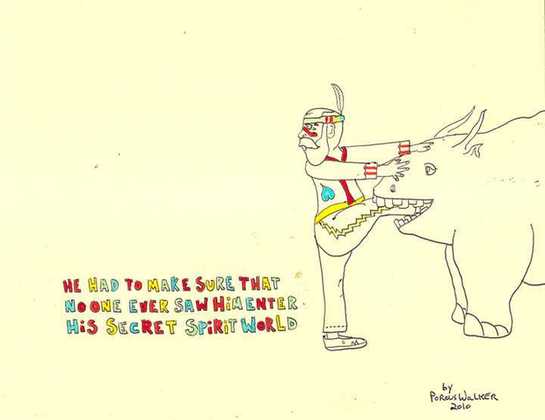 HE HAD TO MAKE SURE THAT
NO ONE EVER SAW HIM ENTER
HIS SECRET SPIRIT WORLD
by
POROUS WALKER
2010